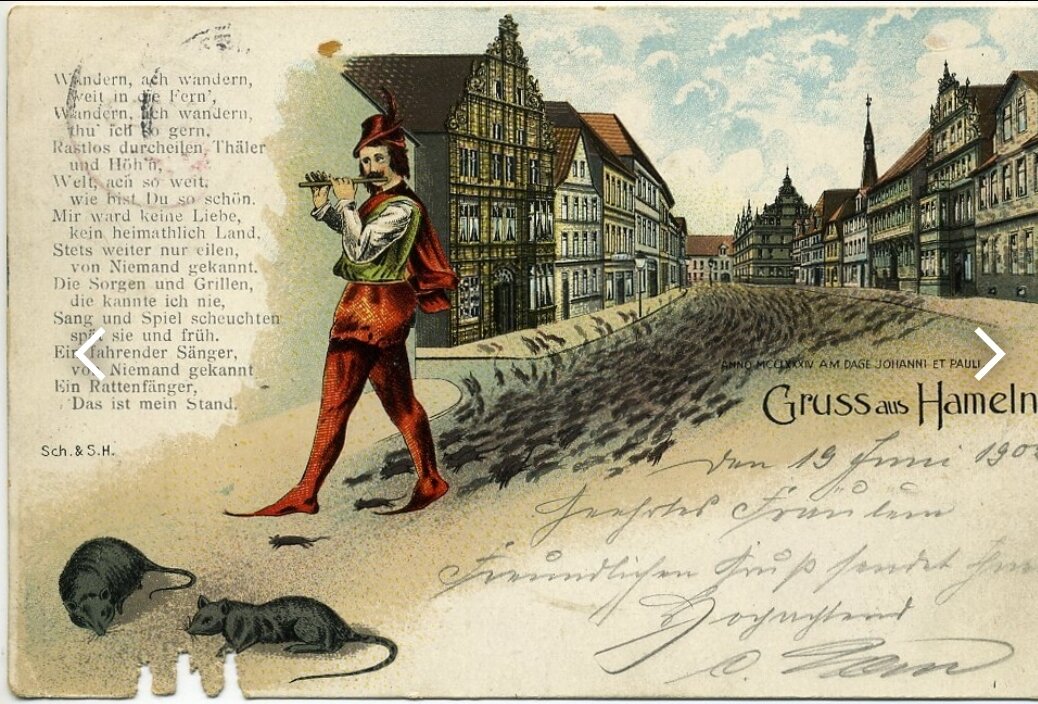 Wandern, ach wandern,
weit in die Fern',
Wandern, ach wandern,
thu' ich so gern.
Rastlos durcheilen Thäler
und Höh'n,
Welt, ach so weit,
wie bist Du so schön.
Mir ward keine Liebe,
kein heimathlich Land,
Stets weiter nur eilen,
von Niemand gekannt.
Die Sorgen und Grillen,
die kannte ich nie,
Sang und Spiel scheuchten
spät sie und früh.
Ein fahrender Sänger,
von Niemand gekannt
Ein Rattenfänger,
Das ist mein Stand.
Sch. & S.H.
ANNO MCCLXXXIV AM DAGE JOHANNI ET PAULI
Gruss aus Hameln
Den 19 Juni 190
Geehrtes Fräulein
Freundlichen Gruß sendet
Hochachtend